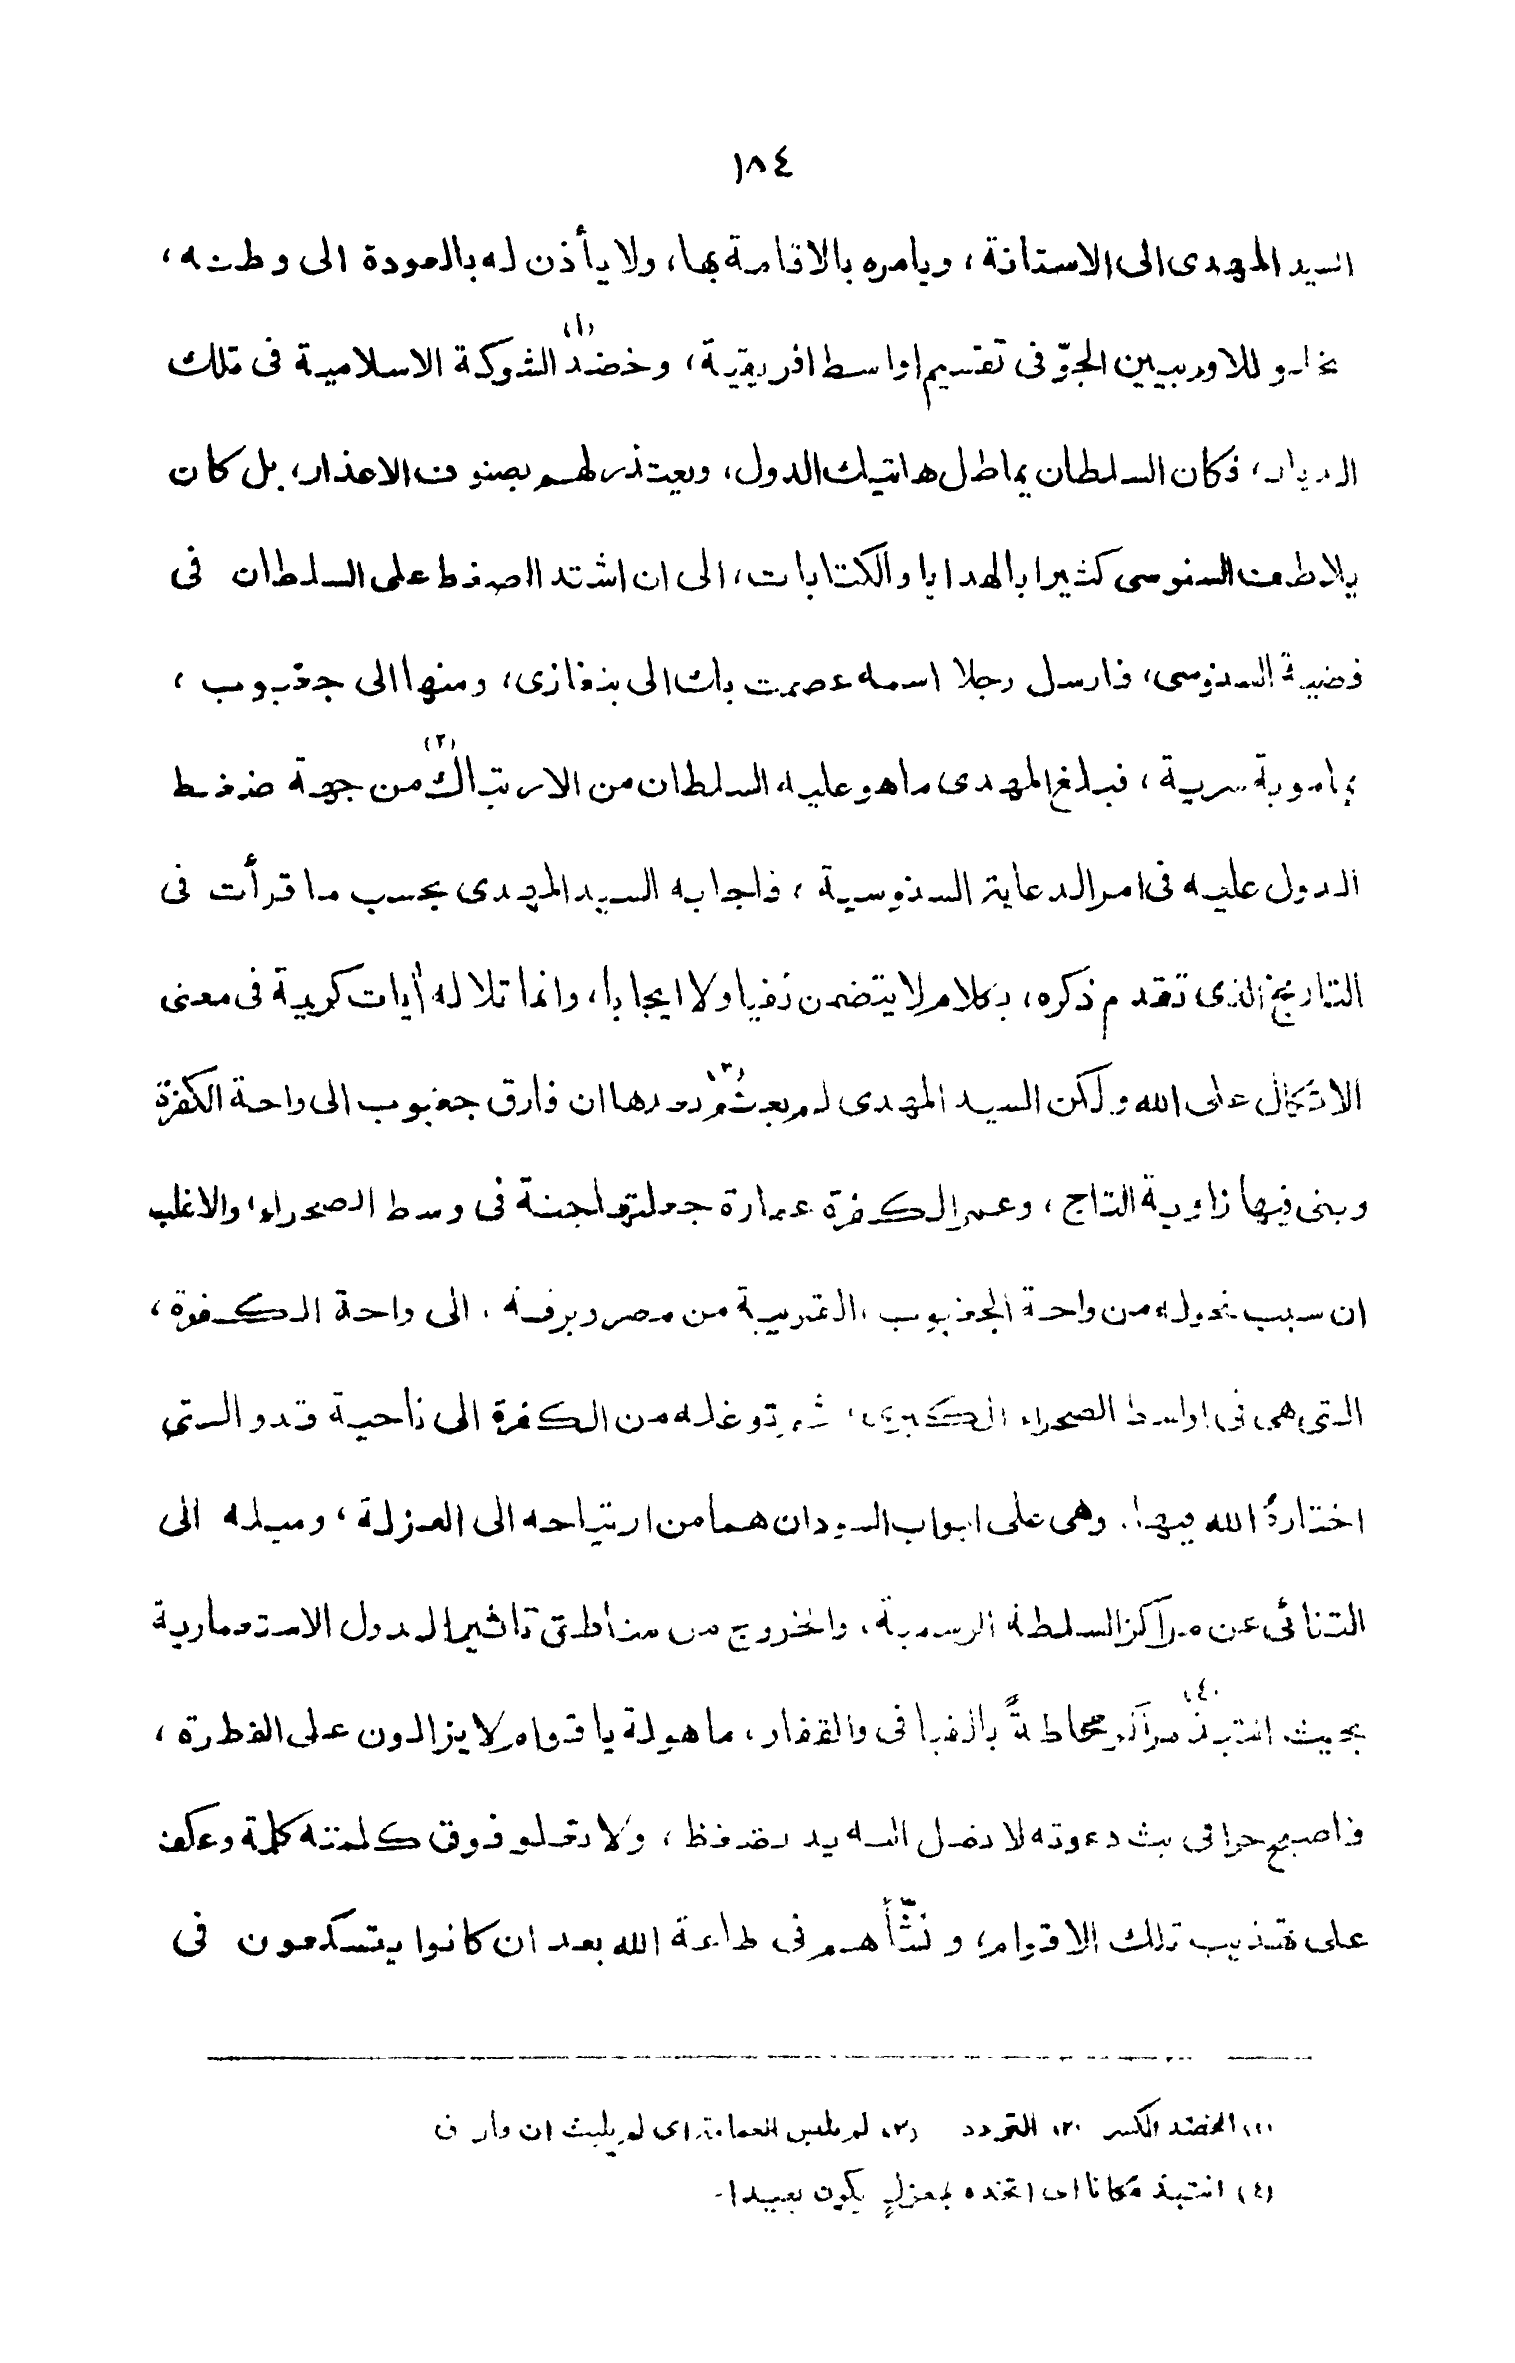 ١٨٤
السيد المهدى الى الاستانة، ويامره بالاقامة بها، ولا يأذن له بالعودة الى وطنه،
يخلو للاوربيين الجوّ فى تقسيم اواسط افريقية، وخضد(١) الشوكة الاسلامية فى تلك
الديار، فكان السلطان يماطل هاتيك الدول، ويعتذر لهم بصنوف الاعذار، بل كان
يلاطف السنوسى كثيرا بالهدايا والكتابات، الى ان اشتد الضغط على السلطان فى
قضية السنوسى، فارسل رجلا اسمه عصمت بك الى بنغازى، ومنها الى جغبوب،
بماموية سرية، فبلغ المهدى ما هو عليه السلطان من الارتباك(٢) من جهة ضغط
الدول عليه فى امر الدعاية السنوسية، فاجابه السيد المهدى بحسب ما قرأت فى
التاريخ الذى تقدم ذكره، بكلام لا يتضمن نفيا ولا ايجابا، وانما تلا له أيات كريمة فى معنى
الاتكال على الله ولكن السيد المهدى لم يعثم(٣) بعدها ان فارق جغبوب الى واحة الكفرة
وبنى فيها زاوية التاج، وعمر الكفرة عمارة جعلتها جنة فى وسط الصحراء، والاغلب
ان سبب تحوله من واحة الجغبوب، القريبة من مصر وبرقة، الى واحة الكفرة،
التى هى فى اواسط الصحراء الكبرى، ثم توغله من الكفرة الى ناحية قدو التى
اختارهُ الله فيها، وهى على ابواب السودان هما من ارتياحه الى العزلة، وميله الى
التنائى عن مراكز السلطة الرسمية، والخروج من مناطق تاثير الدول الاستعمارية
بحيث انتبذ(٤) مراكز محاطةً بالفيافى والقفار، ماهولة باقوام لا يزالون على الفطرة،
فاصبح حرا فى بث دعوته لا تصل اليه يد بضغط، ولا تعلو فوق كلمته كلمة وعكف
على تهذيب تلك الاقوام، ونشّأهم فى طاعة الله بعد ان كانوا يتسكعون فى
(١) الخضد الكسر (٢) التردد (٣) لم يعثم اى لم يلبث ان فارق
(٤) انتبذ مكانا اى اتخذه بمعزلٍ يكون بعيدا.